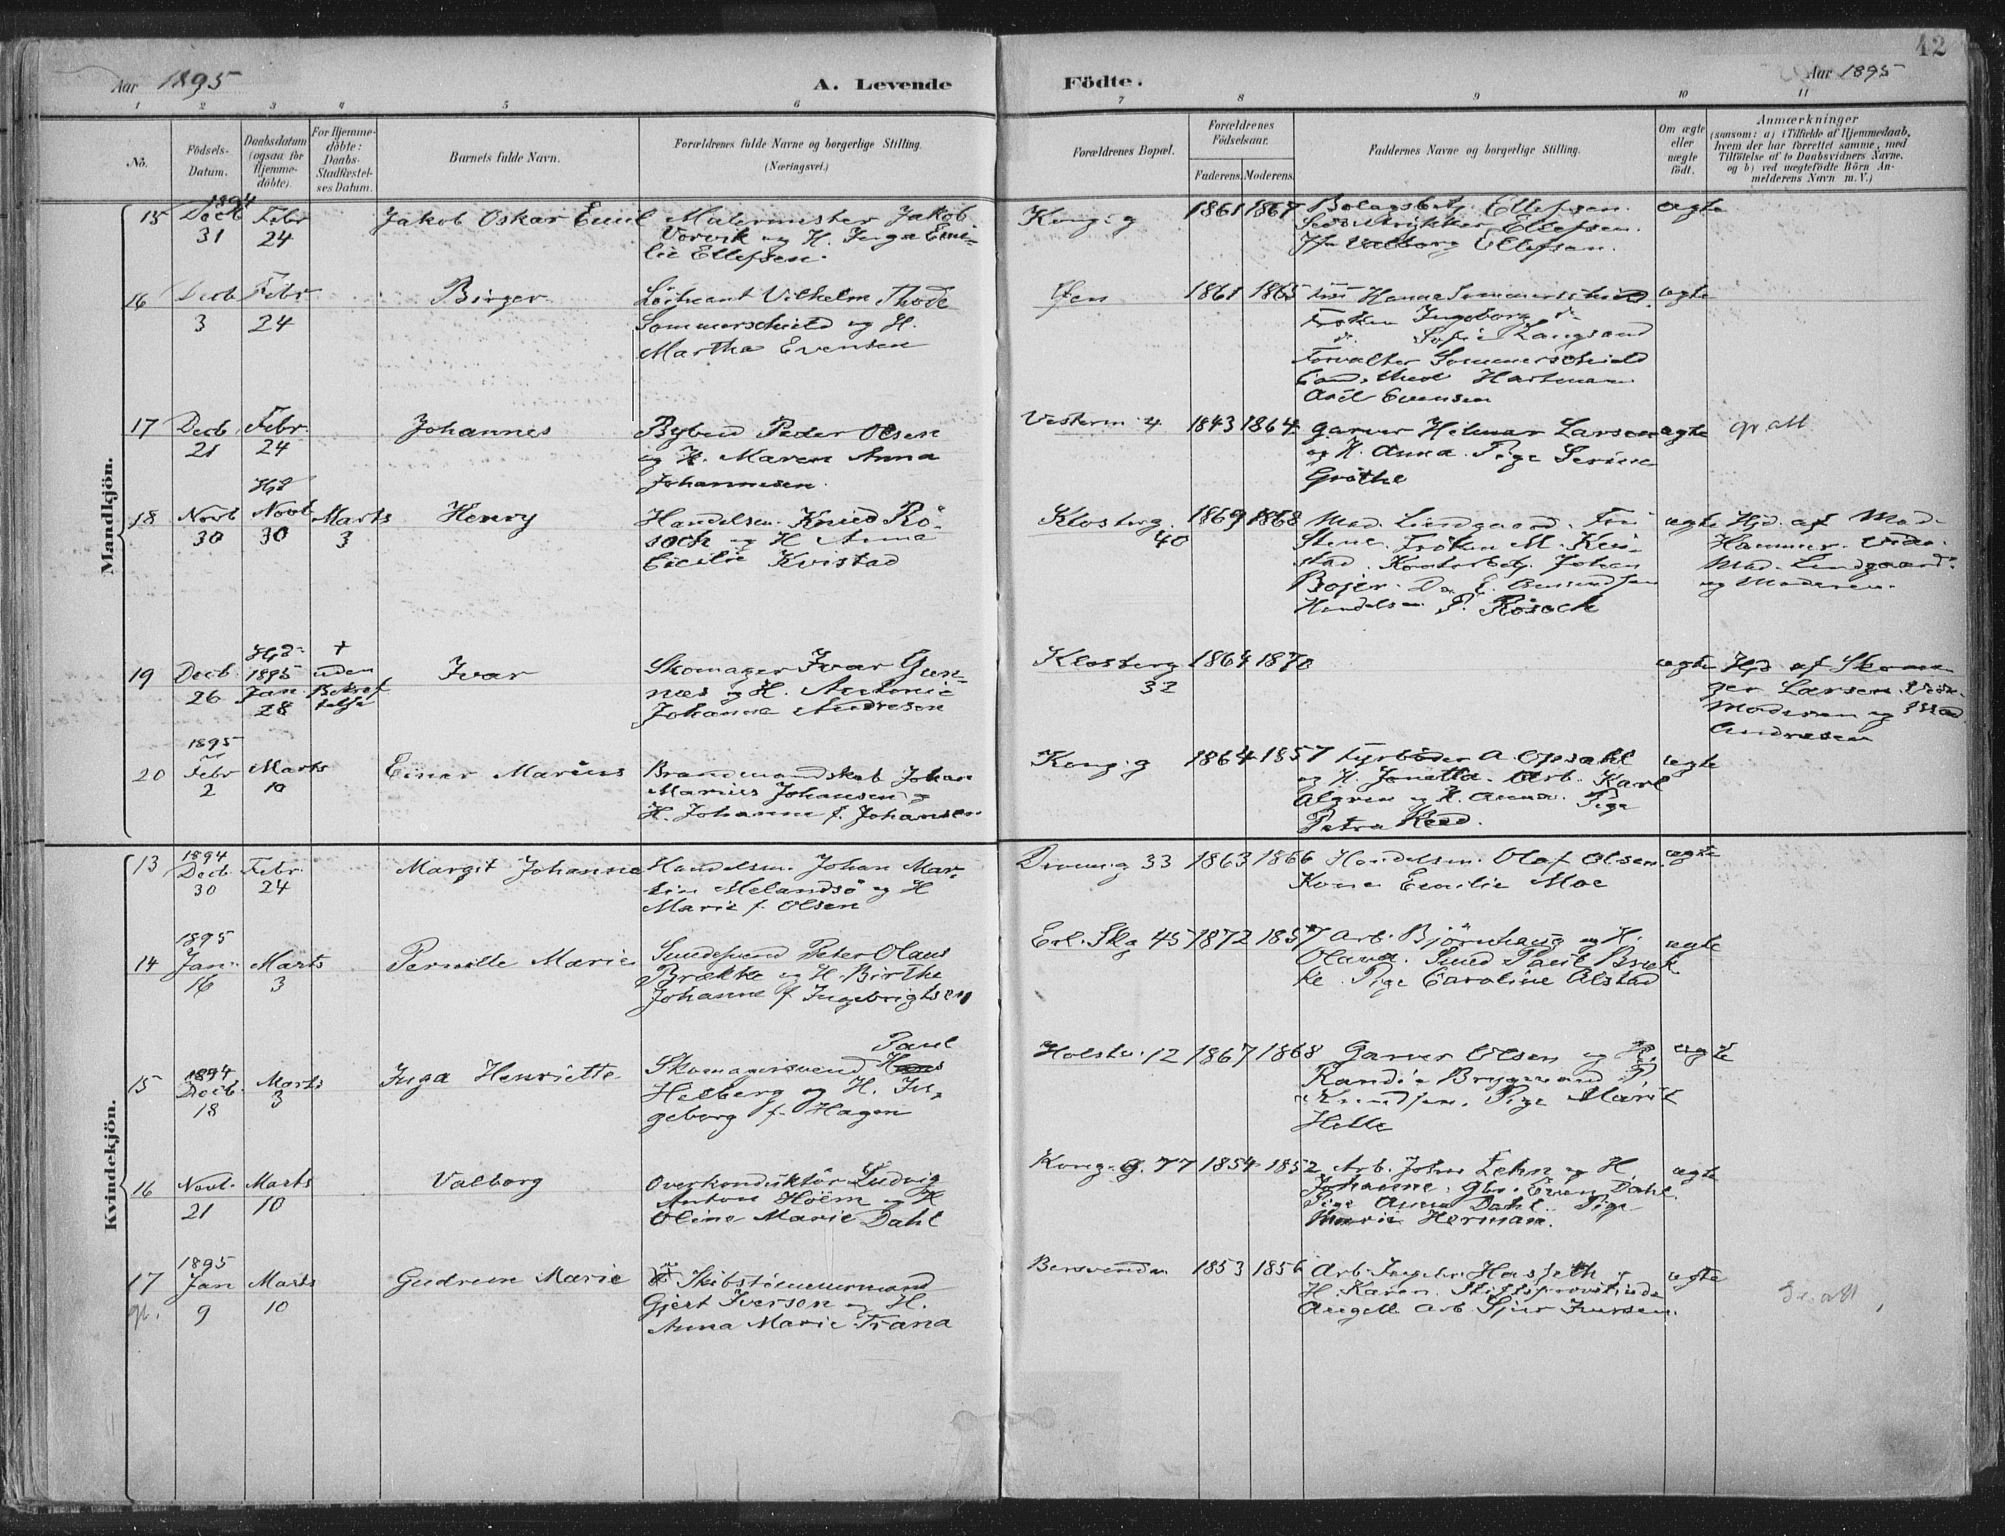 42
Aar 1895
A. Levende
Födte.
Aar 1895
1 2 3 4 5 6 7 8 9 10 11
No.
Födsels-
Datum.
Daabsdatum
(ogsaa for
Hjemme-
döbte).
For Hjemme-
döbte:
Daabs-
Stadfæstel-
ses Datum.
Barnets fulde Navn.
Forældrenes fulde Navne og borgerlige Stilling.
(Næringsvei.)
Forældrenes Bopæl.
Forældrenes
Födselsaar.
Faderens. Moderens.
Faddernes Navne og borgerlige Stilling.
Om ægte
eller
uægte
födt.
Anmærkninger
(saasom: a) i Tilfælde af Hjemmedaab,
hvem der har forrettet samme, med
Tilföielse af to Daabsvidners Navne,
og b) ved uægtefödte Börn An-
melderens Navn m. V.)
Mandkjön.
15 1894 Decb 31 Febr 24 Jakob Oskar Emil
Malermester Jakob
Vorvik og H. Inga Emi-
lie Ellefsen.
Kong. g 1861 1867
Bolagsbetj. Ellefsen.
Ellefsen.
Valborg Ellefsen.
ægte
16 Decb 3 Febr 24 Birger
Löitnant Vilhelm Thode
Sommerschield og H.
Martha Evensen
Öen 1861 1865
Hanna Sommerschield.
Fröken Ingeborg do
do. Sofie Langsand
Forvalter Sommerschield
Cand. theol Hartmann
Axel Evensen
ægte
17 Decb. 21 Febr. 24 Johannes
Bybud Peder Olsen
og H. Maren Anna
Johannesen.
Vesterm 4 1843 1864
Garver Hilmar Larsen
og H. Anna. Pige Serine
Gröthe
ægte
gr att
18 Novb 30 Hjd Novb 30 Marts 3 Henry
Handelsm. Knud Rö-
soch og H Anna
Cecilie Kvistad
Klosterg. 40 1869 1868
Mad. Lindgaard. Fru
Stene. Fröken M. Kvi-
stad. Kontorbetj. Johan
Bojer. E.
Handelsm P. Rösoch
ægte
Hjd. af Mad.
Hammer. Vidn.
Mad. Lindgaard
og Moderen.
19 Decb. 26 Hjd 1895 Jan 28 + uden Bekræf telse Ivar
Skomager Ivar Gun-
næs og H. Antonie
Johanna Andresen
Klosterg 32 1864 1870
ægte
Hjd af Skoma
ger Larsen. Vidn.
Moderen og Mad
Andresen
20 1895 Febr 2 Marts 10 Einar Marius
Brandmandskab Johan
Marius Johansen og
H. Johanna f. Johansen
Kong. g 1864 1857
Fyrböder A. Opsahl
og H. Jonetta. Arb. Karl
Algren og H. Anna. Pige
Petra
ægte
Kvindekjön.
13 1894 Decb 30 Febr. 24 Margit Johanne
Handelsm. Johan Mar-
tin Melandsö og H
Marie f. Olsen
Dronn. g 33 1863 1866
Handelsm. Olaf Olsen.
Kone Emilie Moe
ægte
14 1895 Jan. 16 Marts 3 Pernille Marie
Smedsvend Peter Olaus
Brække og H. Birthe
Johanne f Ingebrigtsen
Erl. Skg 45 1872 1857
Arb. Björnhaug og H.
Olava. Smed Paul Bræk
ke. Pige Caroline Alstad
ægte
15 1894 Decb. 18 Marts 3 Inga Henriette
Paul
Skomagersvend Hans
Helberg og H. In-
geborg f. Hagen
Holstv. 12 1867 1868
Garver Olsen og H.
Randi Bryggmand P
Knudsen. Pige Marit
Helle
ægte
16 Novb. 21 Marts 10 Valborg
Overkonduktör Ludvig
Anton Höem og H
Oline Marie Dahl
Kong. g. 77 1854 1852
Arb. John Lehn og H
Johanne. Gbr. Even Dahl.
Pige Anna Dahl. Pige
Marie Herman.
ægte
17 1895 Jan 9 Marts 10 Gudrun Marie
gr.
Skibstömmermand
Gjert Iverson og H.
Anna Marie Trana
Bersvenda 1853 1856
Arb. Ingebr. Hasseth og
H. Karen. Stiftsprovstinde
Angell. Arb. Sjur Iversen.
ægte
Gr. att